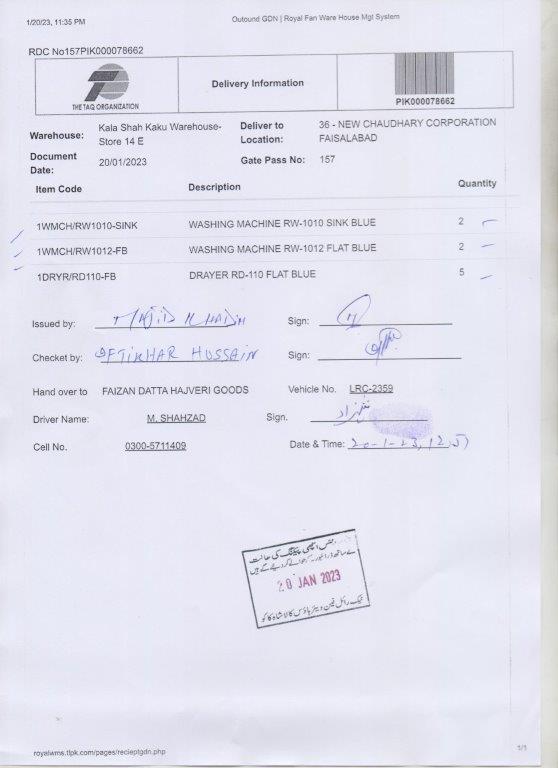 1/20/23, 11:35 PM Outound GDN | Royal Fan Ware House Mgt System
RDC No157PIK000078662
THE TAQ ORGANIZATION
Delivery Information
PIK000078662
Warehouse: Kala Shah Kaku Warehouse-Store 14 E Deliver to Location: 36 - NEW CHAUDHARY CORPORATION FAISALABAD
Document Date: 20/01/2023 Gate Pass No: 157
Item Code Description Quantity
1WMCH/RW1010-SINK WASHING MACHINE RW-1010 SINK BLUE 2
1WMCH/RW1012-FB WASHING MACHINE RW-1012 FLAT BLUE 2
1DRYR/RD110-FB DRAYER RD-110 FLAT BLUE 5
Issued by: Sign:
Checket by: IFTIKHAR HUSSAIN Sign:
Hand over to FAIZAN DATTA HAJVERI GOODS Vehicle No. LRC-2359
Driver Name: M. SHAHZAD Sign. شہزاد
Cell No. 0300-5711409 Date & Time: 20-1-23,
جنس اچھی پیکنگ کی حالت
کے ساتھ ڈرائیور کے حوالے کر دیئے گئے ہیں
20 JAN 2023
ٹیک رائل فین ویئر ہاؤس کالا شاہ کاکو
royalwms.tlpk.com/pages/recieptgdn.php 1/1